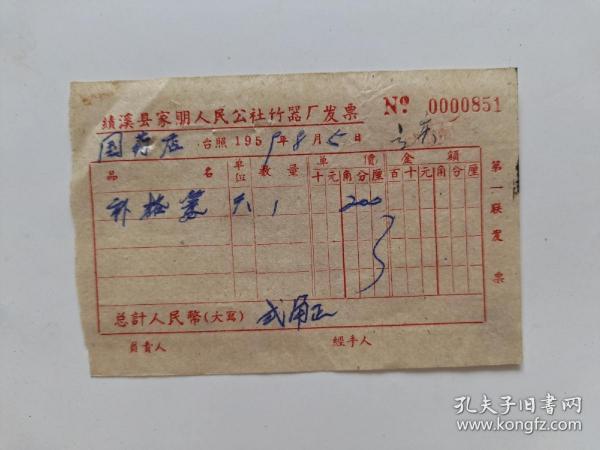 績溪县家朋人民公社竹器厂发票 № 0000851
国药店 台照 1959年8月5日
品名 单位 数量 单價 金額
十元角分厘 百十元角分厘
补 1 200
总計人民幣(大寫) 弍角正
負責人 經手人
第一联发票
孔夫子旧书网
www.kongfz.com